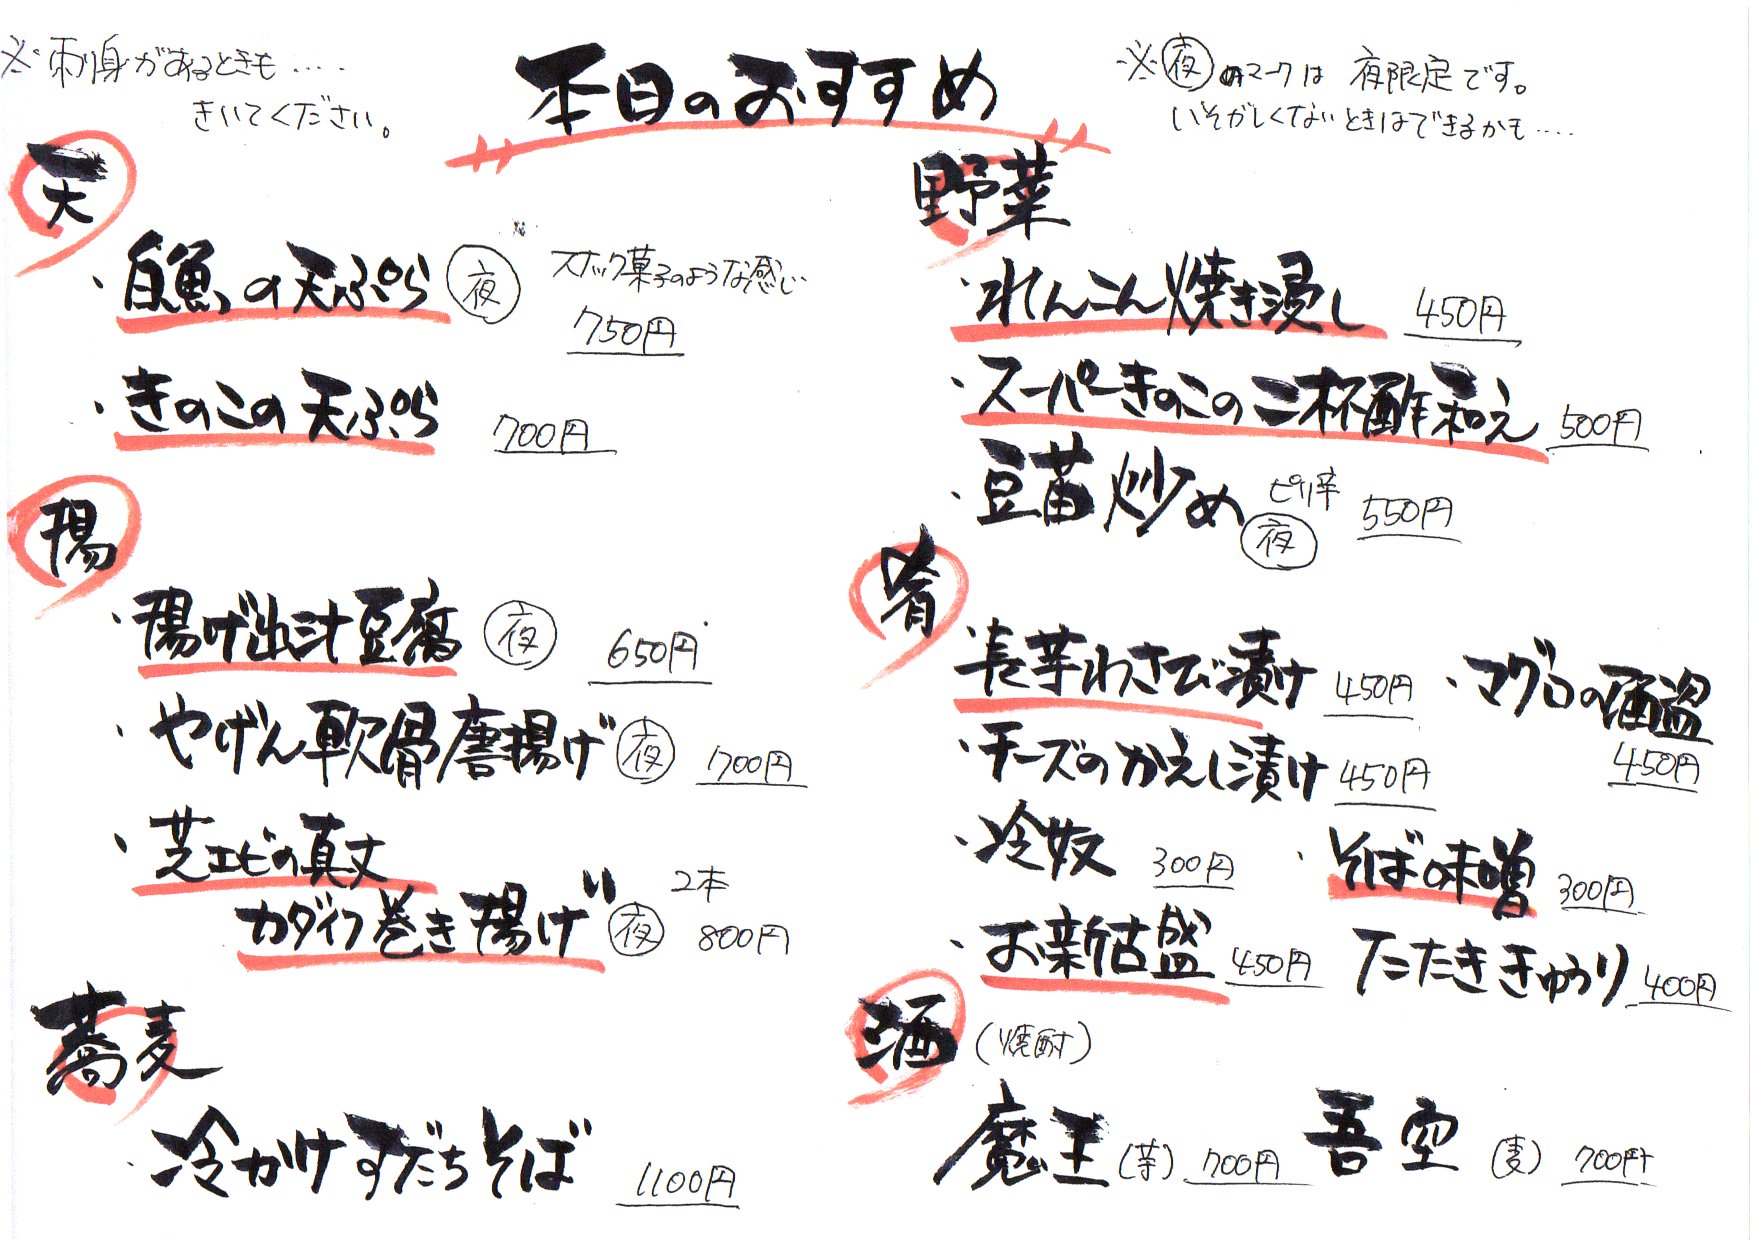 ※刺身があるときも‥‥
きいてください。
本日のおすすめ
※夜のマークは 夜限定です。
いそがしくないときはできるかも‥‥
天
・白魚の天ぷら 夜 スナック菓子のような感じ
750円
・きのこの天ぷら 700円
揚
・揚げ出汁豆腐 夜 650円
・やげん軟骨唐揚げ 夜 700円
・芝エビの真丈
カダイフ巻き揚げ 夜 2本 800円
蕎麦
・冷かけすだちそば 1100円
野菜
・れんこん焼き浸し 450円
・スーパーきのこの二杯酢和え 500円
・豆苗炒め ピリ辛 夜 550円
肴
・長芋わさび漬け 450円 ・マグロの酒盗 450円
・チーズのかえし漬け 450円
・冷奴 300円 ・そば味噌 300円
・お新古盛 450円 たたききゅうり 400円
酒 (焼酎)
魔王(芋) 700円 吾空(麦) 700円